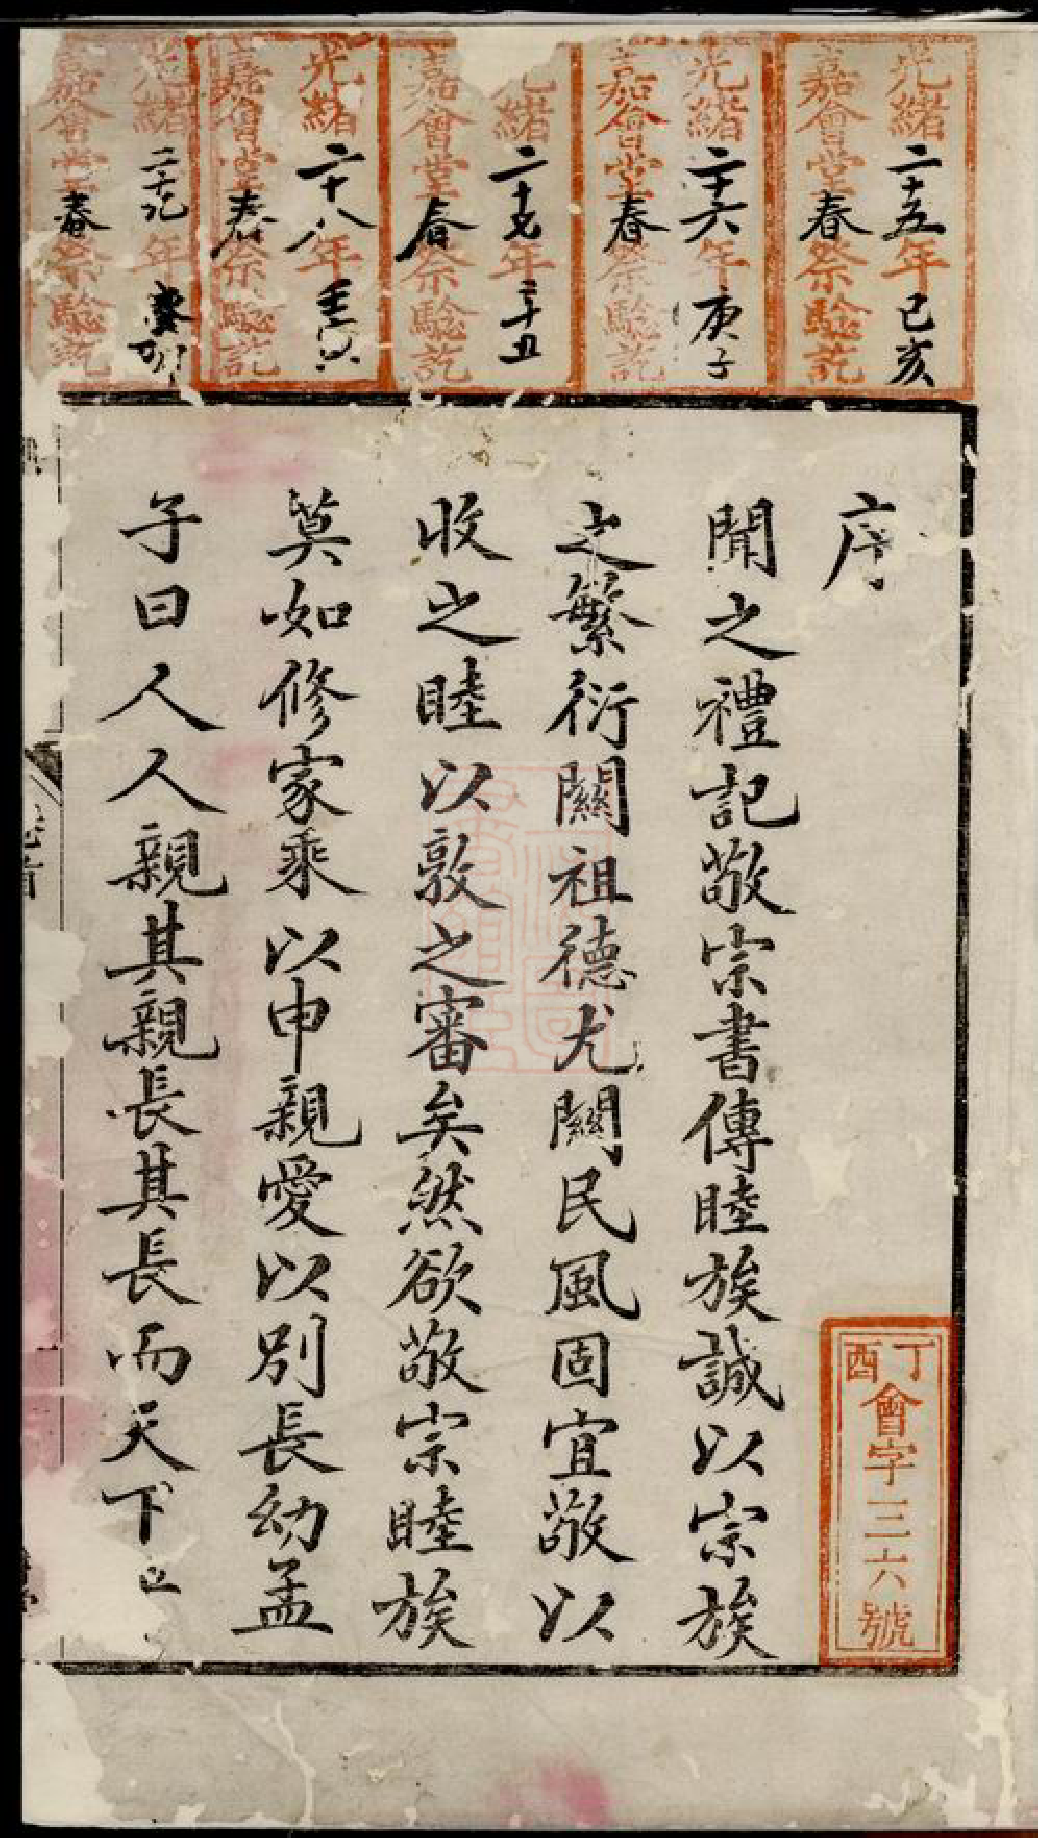 光緒二十五年己亥
嘉會堂春祭驗訖
光緒二十六年庚子
嘉會堂春祭驗訖
光緒二十七年辛丑
嘉會堂春祭驗訖
光緒二十八年壬寅
嘉會堂春祭驗訖
光緒二十九年癸卯
嘉會堂春祭驗訖
序
丁酉
會字三六號
聞之禮記敬宗書傳睦族誠以宗族
之繁衍關祖德尤關民風固宜敬以
收之睦以敦之審矣然欲敬宗睦族
莫如修家乘以申親愛以別長幼孟
子曰人人親其親長其長而天下